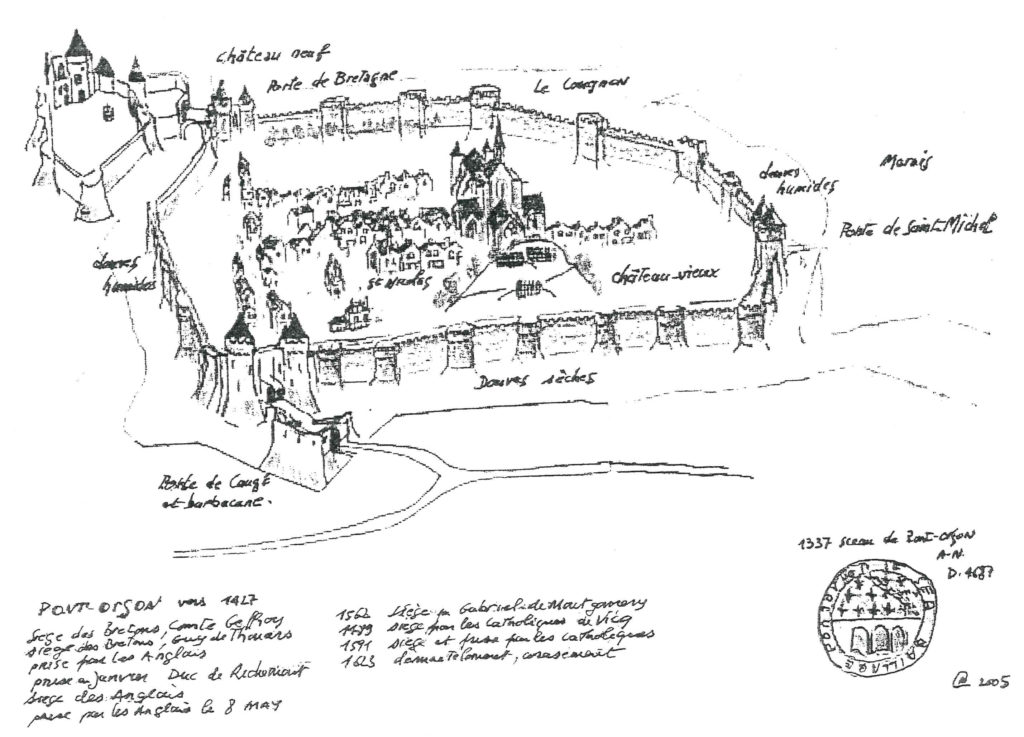 Château neuf
Porte de Bretagne
Le Couesnon
douves
humides
Marais
Porte de Saint-Michel
douves
humides
St Nicolas
château-vieux
Douves sèches
Porte de Caugé
et barbacane.
1337 sceau de Pont-Orson
A-N.
D. 4687
PONT-ORSON vers 1427
siege des Bretons, Comte Geffroy
siège des Bretons, Guy de Thouars
prise par les Anglais
prise en Janvier Duc de Richemont
siege des Anglais
prise par les Anglais le 8 MAY
1562 siège par Gabriel-de Montgomery
siège par les catholiques de Vicq
1591 siège et prise par les catholiques
1623
BAILLAGE
@ 2005